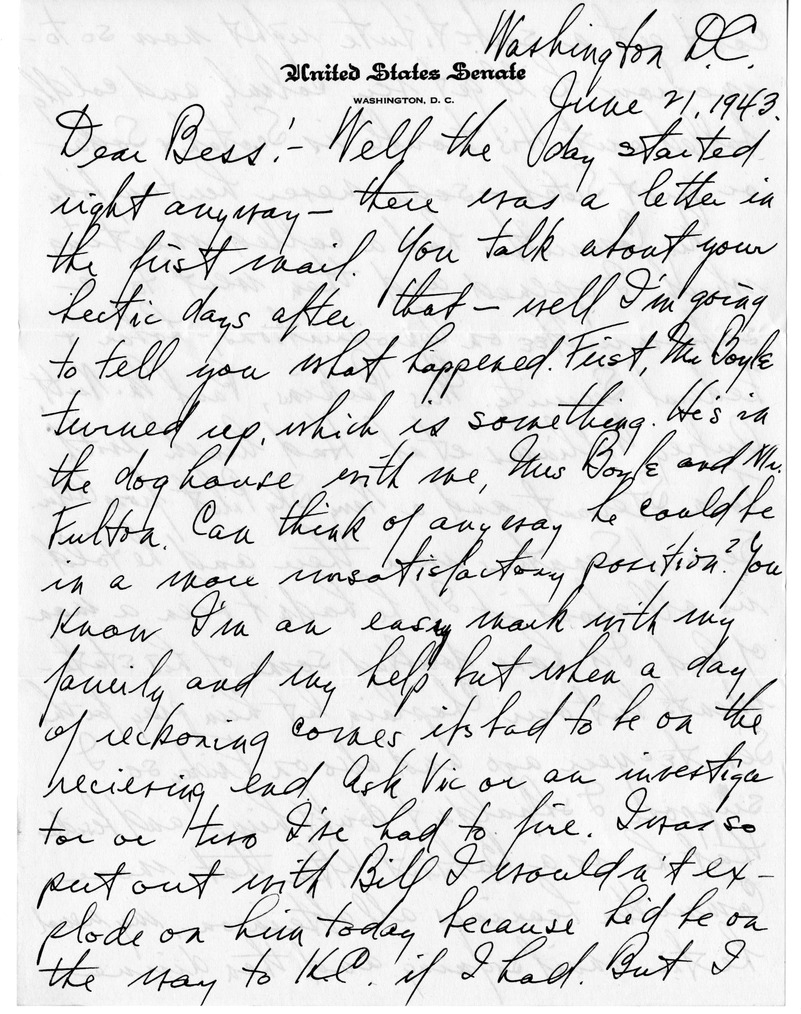 Washington D.C.
United States Senate
WASHINGTON, D. C.
June 21, 1943.
Dear Bess:- Well the day started
right anyway — there was a letter in
the first mail. You talk about your
hectic days after that — well I'm going
to tell you what happened. First, Mr Boyle
turned up, which is something. He's in
the doghouse with me, Mrs Boyle and Mr.
Fulton. Can think of anyway he could be
in a more unsatisfactory position? You
know I'm an easy mark with my
family and my help but when a day
of reckoning comes its bad to be on the
recieving end. Ask Vic or an investiga
tor or two I've had to fire. I was so
put out with Bill I wouldn't ex-
plode on him today because he'd be on
the way to K.C. if I had. But I